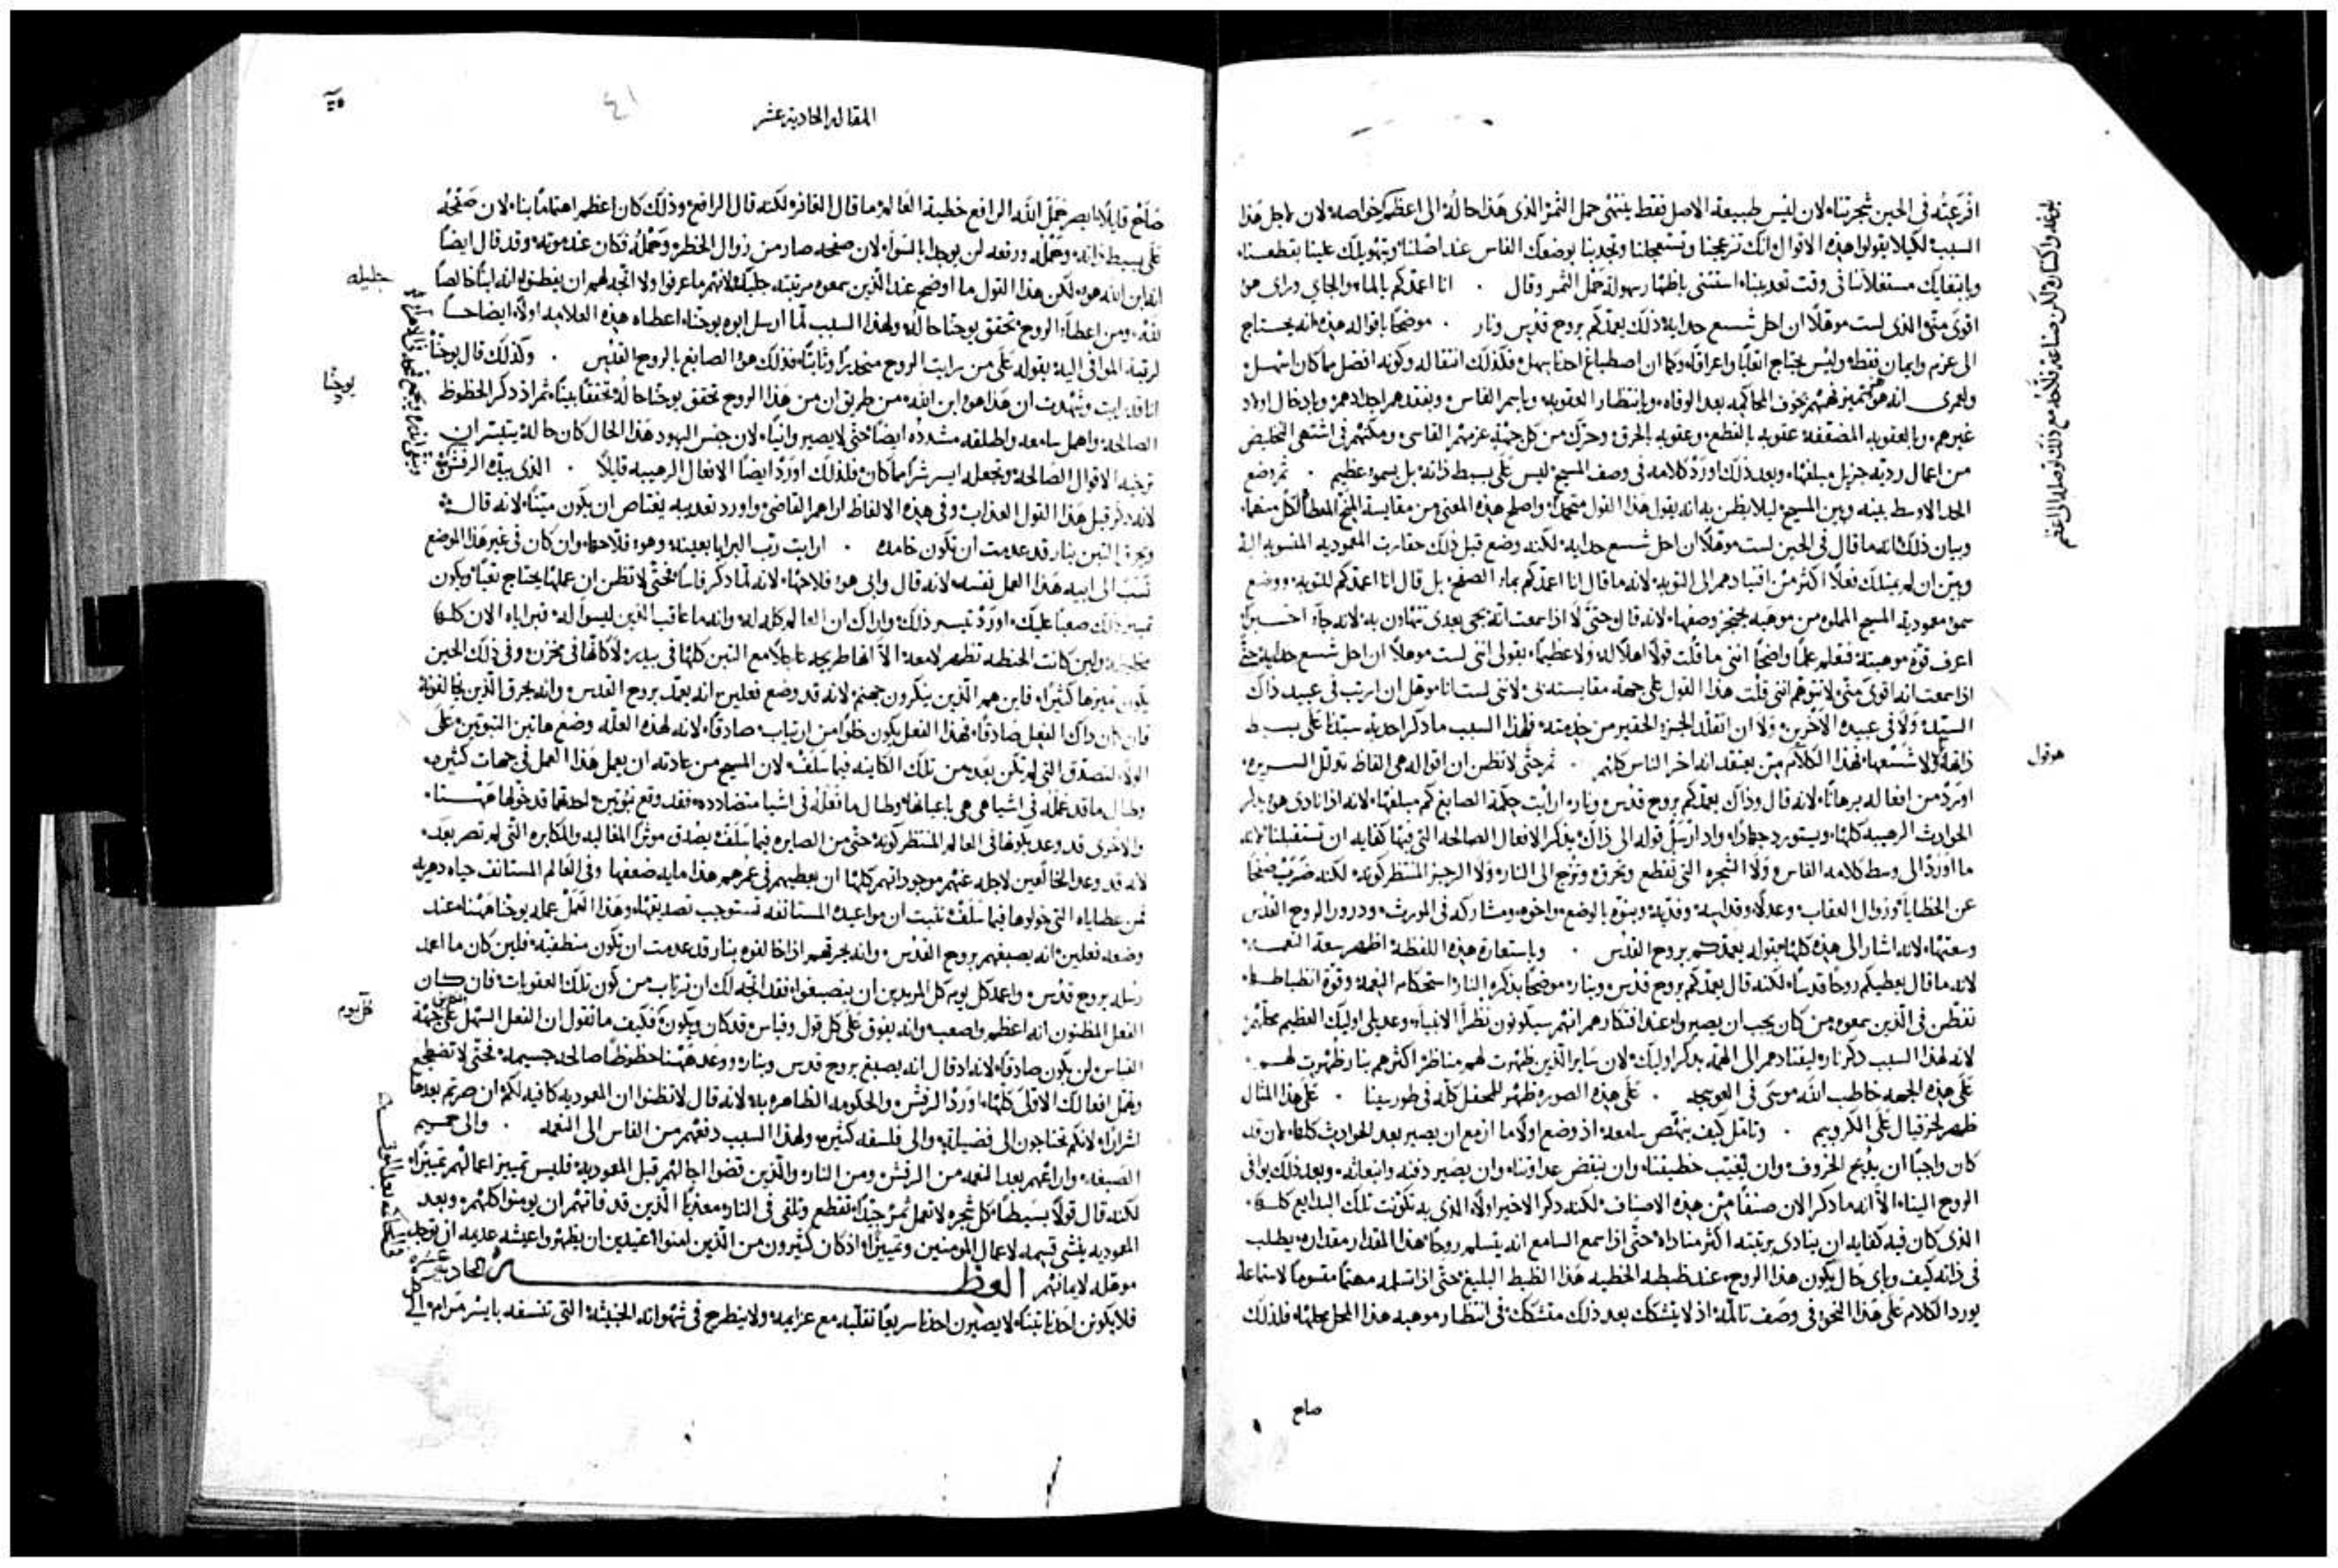 افرعته في الحين شجرتناه لان ليس طبيعة الاصل فقط ينتهي حمل الثمر الذي هذا حاله الى اعظم خواصه لان لاجل هذا
السبب لكيلا يقولوا هذه الاقوال انك تزعجنا وتستعجلنا وتجدبنا بوضعك الفاس عند اصلنا وبتهويلك علينا بقطعنا
وبابتغايك مستغلاتنا في وقت تعديبنا استثنى باظهار سهولة حمل الثمر وقال . انا اعمدكم بالماء والجاي وراي هو
اقوى مني الذي لست موهلا ان احل شسع حدايه ذلك يعمدكم بروح قدس ونار . موضحا باقواله هذه انه يحتاج
الى عزم وايمان فقط وليس يحتاج اتعابا واعراقا وكما ان اصطباغ احدنا سهل فكذلك انتقاله وكونه افضل مما كان اسهل
ولعمري انه هو بخوف المحاكمه بعد الوفاه وبانتظار العقوبه وباسم الفاس وبفقدهم اجدادهم وبادخال اولاد
غيرهم وبالعقوبه المضعفة عقوبه بالقطع وعقوبه بالحرق وحرك من كل جهة عزمهم القاسي ومكنهم في اشتهى التخليص
من اعمال رديه جزيل مبلغها وبعد ذلك اورد كلامه في وصف المسيح ليس على بسيط ذاته بل بسمو عظيم . ثم وضع
الحد الاوسط بينه وبين المسيح ليلا يظن به انه يقول هذا القول متحمدا واصلح هذه المعنى من مقايسة المنح المعطا لكل منهما
وبيان ذلك انه ما قال في الحين لست موهلا ان احل شسع حدايه لكنه وضع قبل ذلك حقارت المعموديه المنسوبه اليه
وبين ان لم يمتلك فعلا اكثر من اقتيادهم الى التوبه لانه ما قال انا اعمدكم بماء الصفح بل قال انا اعمدكم للتوبه ووضع
سمو معموديه المسيح المملوه من موهبه يعجز وصفها لانه قال حتى لا اذا سمعت انه يجي بعدي تتهاون به لانه جا اخيرا
اعرف قوة موهبته فتعلم علما واضحا انني ما قلت قولا اهلا له ولا عظيما بقولي انني لست موهلا ان احل شسع حدايه حتى
اذا سمعت انه اقوى مني لا تتوهم انني قلت هذا القول على جهة مقايسته بي لانني لست انا موهل ان ارتب في عبيد ذاك
السيد ولا في عبيده الاخرين ولا ان اتقلد الجزء الحقير من خدمته فلهذا السبب ما ذكر احديه ستدا على بسيط
ذاتها لا شسعها فهذا الكلام من يعتقد انه اخر الناس كلهم . ثم حتى لا تظن ان اقواله هي الفاظ تذلل السريره
اورد من افعاله برهانا لانه قال وذاك يعمدكم بروح قدس ونار ارايت حكمة الصابغ كم مبلغها لانه اذا نادى هو يذكر
الحوادث الرهيبه كلها ويستورد جهادا واد ارسل قوله الى ذاك يذكر الافعال الصالحه التي فيها كفايه ان تستقبلنا لانه
ما اورد الى وسط كلامه الفاس ولا الشجره التي تقطع وتحرق وتزج الى النار ولا الرجز المنتظر كونه لكنه ضرب صفحا
عن الخطايا وزوال العقاب وعدلا وقداسه وفديه وبنوه بالوضع واخوه ومشاركه في المورث ودرور الروح القدس
وسعتها لانه اشار الى هذه كلها بقوله يعمدكم بروح القدس . وباستعارة هذه اللفظه اظهر سعة النعمه
لانه ما قال يعطيكم روحا قدسا لكنه قال يعمدكم بروح قدس وبنار موضحا بذكره النار استحكام النعمه وقوة انضباطها
تفطن في الذين سمعوه من كان يجب ان يصيروا عند افتكارهم انهم سيكونون نظرا الانبيا وعديلي اوليك العظيم محلهم
لانه لهذا السبب ذكر نار ليقتادهم الى الهمه بذكر اوليك لان ساير الذين ظهرت لهم مناظر اكثرهم بنار ظهرت لهم
على هذه الجهه خاطب الله موسى في العوسجه . على هذه الصوره ظهر للمحفل كله في طور سينا . على هذا المثال
ظهر لحزقيال على الكروبيم . وتامل كيف ينهض سامعه اذ وضع اولا ما ازمع ان يصير بعد الحوادث كلها لان قد
كان واجبا ان يذبح الخروف وان يغيب خطيتنا وان ينقض عداوتنا وان يصير دفنه وانبعاثه وبعد ذلك يوافي
الروح الينا الا انه ما ذكر الان صنفا من هذه الاصناف لكنه ذكر الاخير اولا الذي به تكونت تلك البدايع كلها
الذي كان فيه كفايه ان ينادي برتبته اكثر مناداه حتى اذا سمع السامع انه يتسلم روحا هذا المقدار مقداره يطلب
في ذاته كيف وباي حال يكون هذا الروح عند ضبطه الخطيه هذا الضبط البليغ حتى اذا تسلمه مهتما مقسوما لاستماعه
يورد الكلام على هذا النحو في وصف تالمه اذ لا يتشكك بعد ذلك متشكك في انتظار موهبه هذا المحل محلها فلذلك
هو قول
صاح
المقاله الحادية عشر
٤١
صاح قايلا ابصر حمل الله الرافع خطية العالم ما قال الغافر لكنه قال الرافع وذلك كان اعظم اهتماما بنا لان صفحه
على بسيط ذاته وحمله ورفعه لن يوجدا بالسواء لان صفحه صار من زوال الخطر وحمله فكان عند موته وقد قال ايضا
انه ابن الله هو لكن هذا القول ما اوضح عند الذين سمعوه مرتبته جليله لانهم ما عرفوا ولا اتجه لهم ان يفطنوا انه ابنا خالصا
لله ومن اعطاء الروح تحقق يوحنا حاله ولهذا السبب لما ارسل ابوه يوحنا اعطاه هذه العلامه اولا ايضاحا
لرتبة الموافي اليه بقوله على من رايت الروح منحدرا وثابتا فذلك هو الصابغ بالروح القدس . وكذلك قال يوحنا
انا قد رايت وشهدت ان هذا هو ابن الله من طريق ان من هذا الروح تحقق يوحنا حاله تحققا بينا ثم اذ ذكر الحظوظ
الصالحه واهمل سامعه واطلقه مشدده ايضا حتى لا يصير وانيا لان جنس اليهود هذا الحال كان حاله يتيسر ان
ترخيه الاقوال الصالحه وتجعله ايسر شرا مما كان فلذلك اورد ايضا الافعال الرهيبه قايلا . الذي بيده الرفش
لانه ذكر قبل هذا القول العذاب وفي هذه الالفاظ اراهم القاضي واورد تعديبه يغتاص ان يكون ميتا لانه قال
ويحرق التبن بنار قد عدمت ان تكون خامده . ارايت رب البرايا بعينه وهو فلاحها وان كان في غير هذا الموضع
نسب الى ابيه هذا العمل نفسه لانه قال وابي هو فلاحها لانه لما ذكر فاسا فحتى لا تظن ان عملها يحتاج تعبا ويكون
تمييز ذلك صعبا عليك اورد تيسير ذلك واراك ان العالم كله له وانه ما عاقب الذين ليسوا له فبراياه الان كلها
مختلطه ولين كانت الحنطه تظهر لامعه الا انها طريحه مع التبن كلها في بيدره لا كانها في مخزن وفي ذلك الحين
يكون تميزها كثيرا فاين هم الذين ينكرون جهنم لانه قد وضع فعلين انه يعمد بروح القدس وانه يحرق الذين يخالفونه
فان كان ذاك الفعل صادقا فهذا الفعل يكون خلوا من ارتياب صادقا لانه لهذه العله وضع هاتين النبوتين على
الولا لتصدق التي لم تكن بعد من تلك الكاينه فيما سلف لان المسيح من عادته ان يعمل هذا العمل في جهات كثيره
وطال ما قد عمله في اشيا هي هي باعيانها وطال ما فعله في اشيا متضادده فقد وقع نبوتين احدهما قد خولها ههنا
والاخرى قد وعد بكونها في العالم المنتظر كونه حتى من الصايره فيما سلف يصدق موثرا المغالبه والمكابره التي لم تصر بعد
لانه قد وعد الخالعين لاجله عنهم موجوداتهم كلها ان يعطيهم في عمرهم هذا مايه ضعفها وفي العالم المستانف حياه دهريه
فمن عطاياه التي خولوها فيما سلف تثبت ان مواعيده المستانفه تستوجب تصديقنا وهذا العمل عمله يوحنا ههنا عند
وضعه فعلين انه يصبغهم بروح القدس وانه يحرقهم اذا خالفوه بنار قد عدمت ان تكون منطفيه فلين كان ما اعمد
رسله بروح قدس واعمد كل يوم كل المريدين ان ينصبغوا فقد اتجه لك ان ترتاب من كون تلك العقوبات فان كان
الفعل المظنون انه اعظم واصعب وانه يفوق على كل قول وقياس قد كان ويكون فكيف ما تقول ان الفعل السهل على جهة
القياس لن يكون صادقا لانه اذ قال انه يصبغ بروح قدس وبنار ووعد ههنا حظوظا صالحه جسيمه فحتى لا تضجع
وتحل افعالك الاقل كلها اورد الرفش والحكومه الظاهره به لانه قال لا تظنوا ان المعموديه كافيه لكم ان صرتم بعدها
اشرارا لانكم تحتاجون الى فضيله والى فلسفه كثيره ولهذا السبب دفعهم من الفاس الى النعمه . والى حميم
الصبغه وارعاهم بعد النعمه من الرفش ومن النار والذين قضوا اجالهم قبل المعموديه فليس تمييز اعمالهم تمييزا
لكنه قال قولا بسيطا كل شجره لا تعمل ثمر جيدا تقطع وتلقى في النار معذبا الذين قد فاتهم ان يومنوا كلهم وبعد
المعموديه ينشي قسمه لاعمال المومنين وتمييزا اذ كان كثيرون من الذين امنوا عتيدين ان يظهروا عيشه عديمه ان توجد
موهله لايمانهم العظة الحاديه عشره
فلا يكونن احدنا تبنا لا يصيرن احدنا سريعا تقلبه مع عزايمه ولا ينطرح في شهواته الخبيثه التي تنسفه بايسر مرام الى
جليله
يوحنا
كل يوم